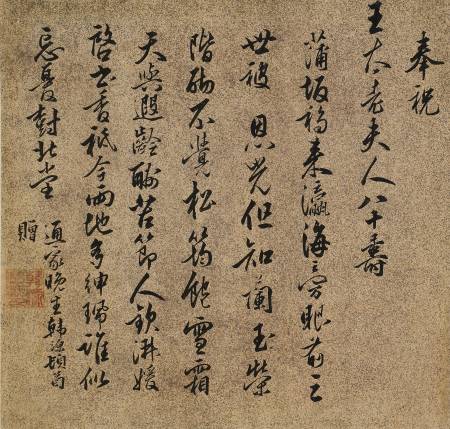 奉祝
王太老夫人八十壽
蒲坂移来瀛海旁眼前三
世被 恩光但知蘭玉榮
階砌不覺松筠飽雪霜
天與遐齡酬苦節人欽淑媛
啓書香祗今兩地多紳珮誰似
忘憂對北堂
通家晚生韓源頓首
贈